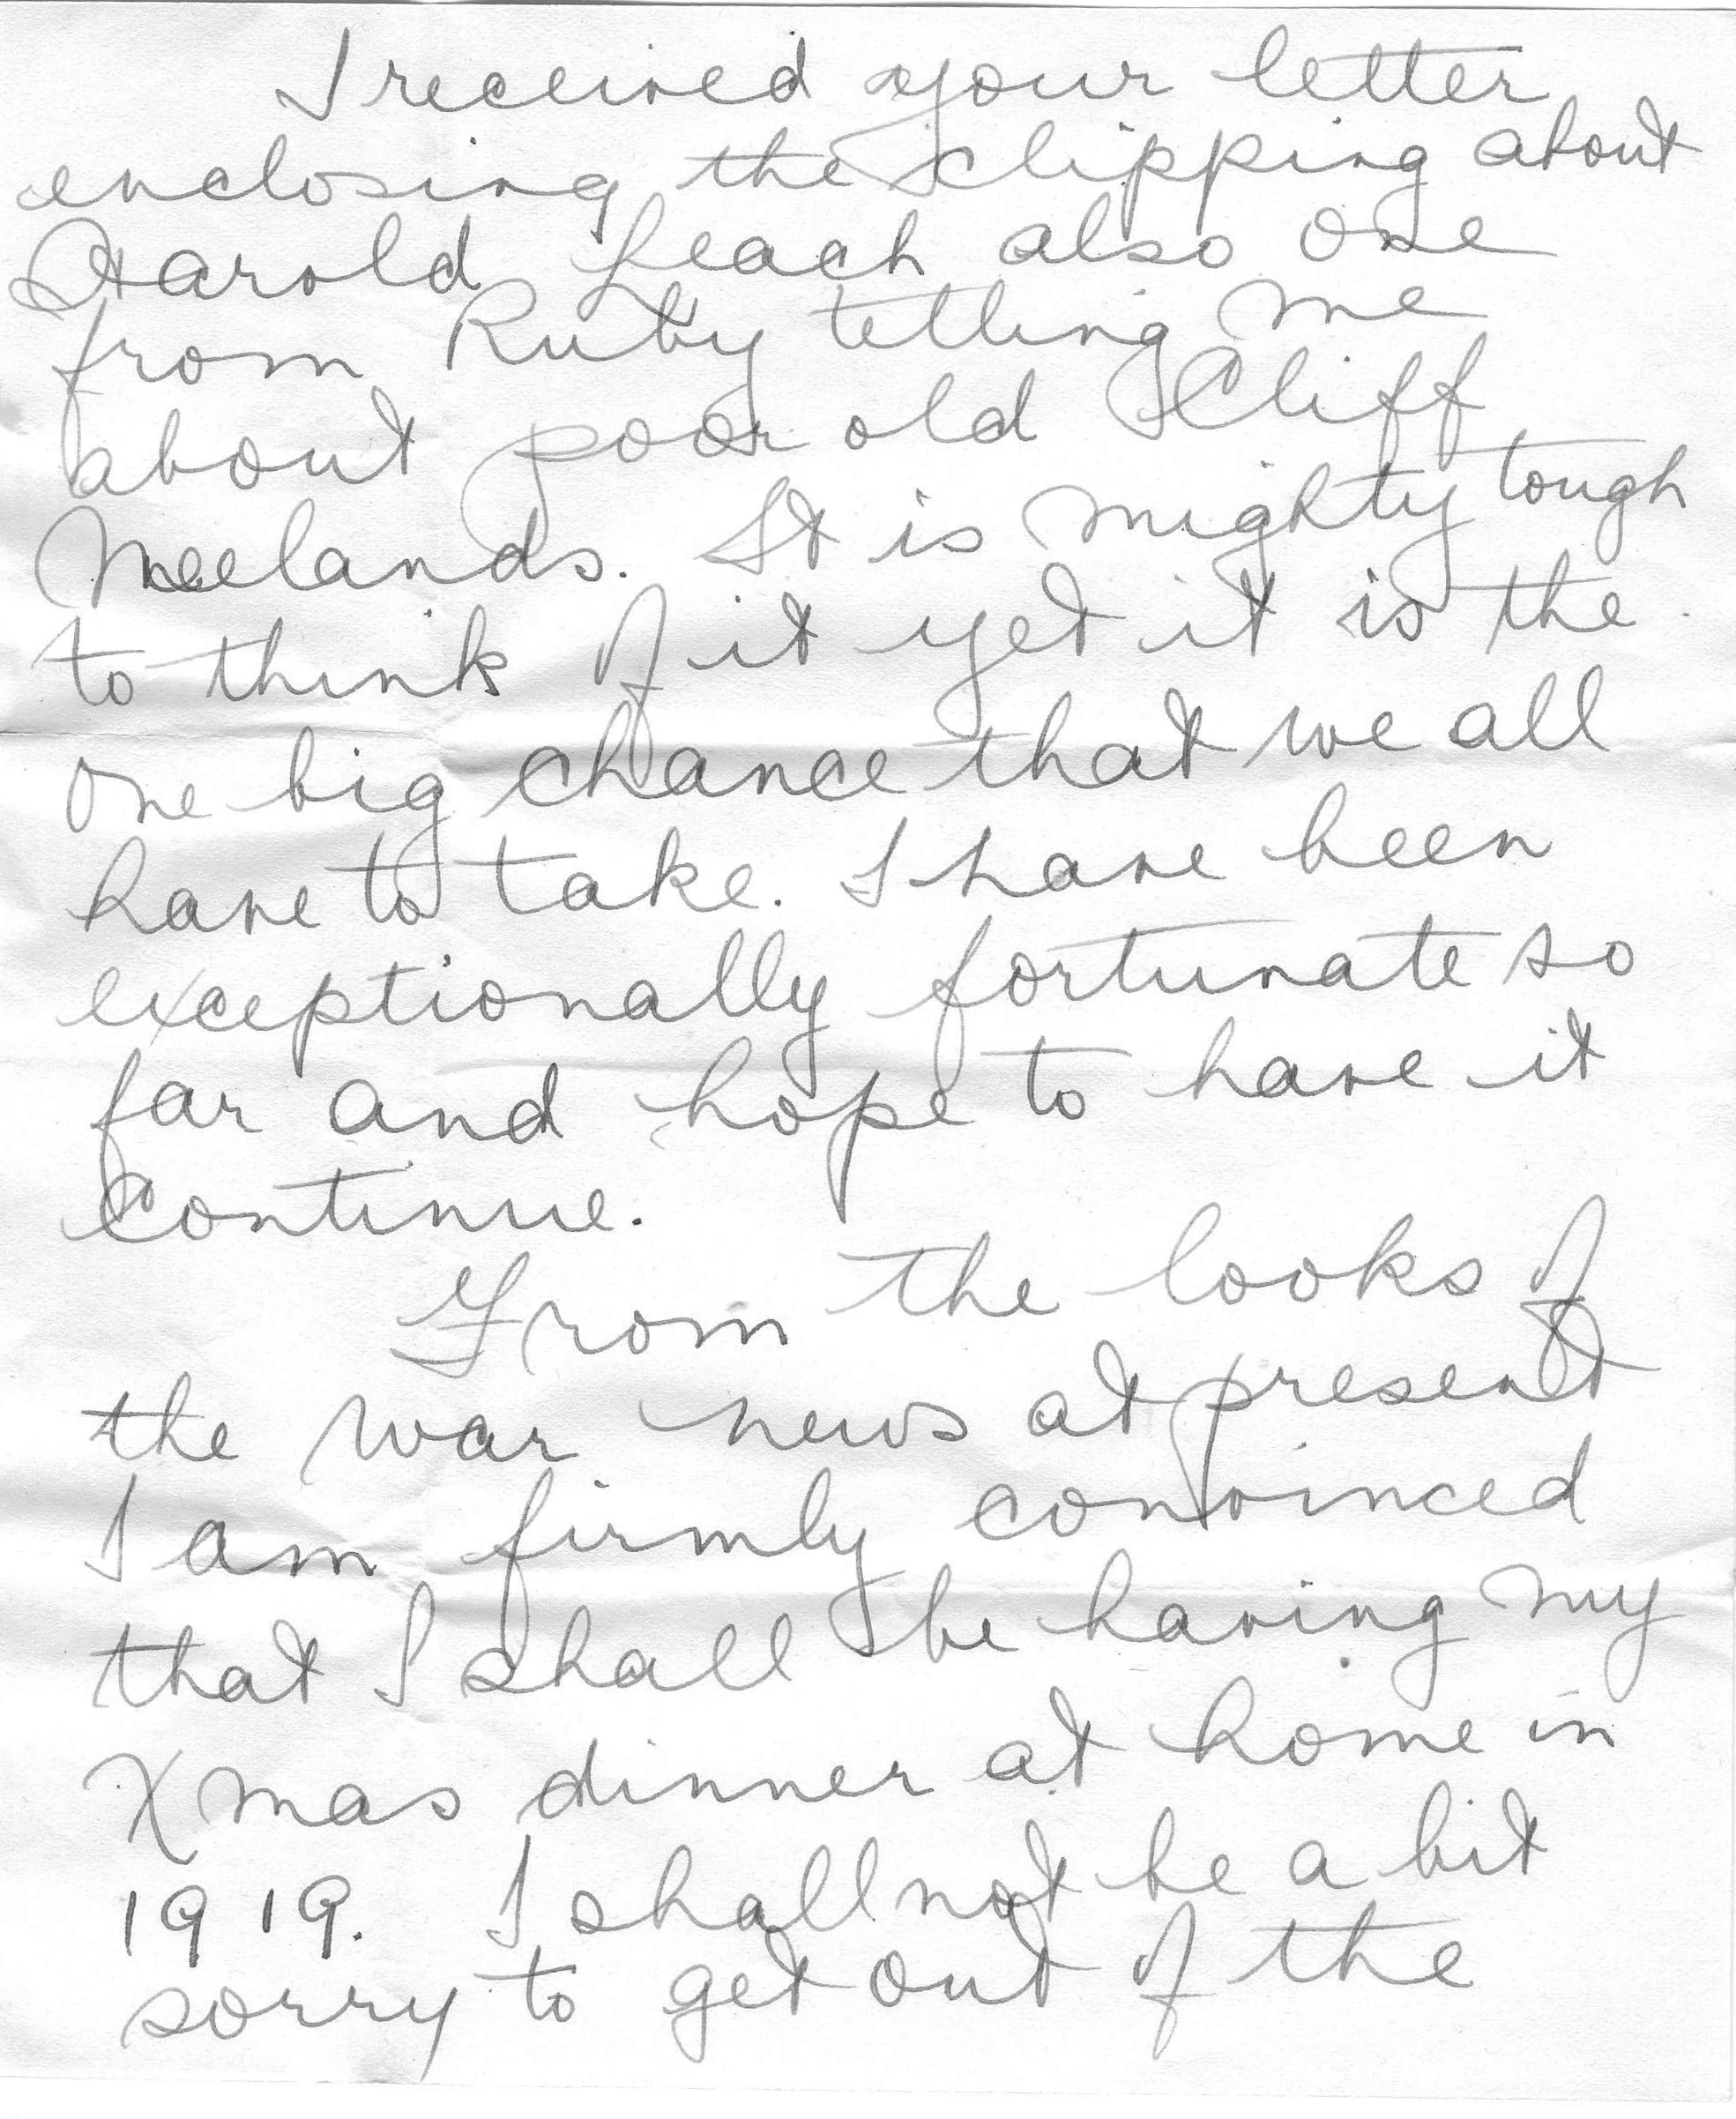 I received your letter
enclosing the clipping about
Harold Leach also one
from Ruby telling me
about poor old Cliff
Neelands. It is mighty tough
to think of it yet it is the
one big chance that we all
have to take. I have been
exceptionally fortunate so
far and hope to have it
continue.
From the looks of
the war news at present
I am firmly convinced
that I shall be having my
Xmas dinner at home in
1919. I shall not be a bit
sorry to get out of the